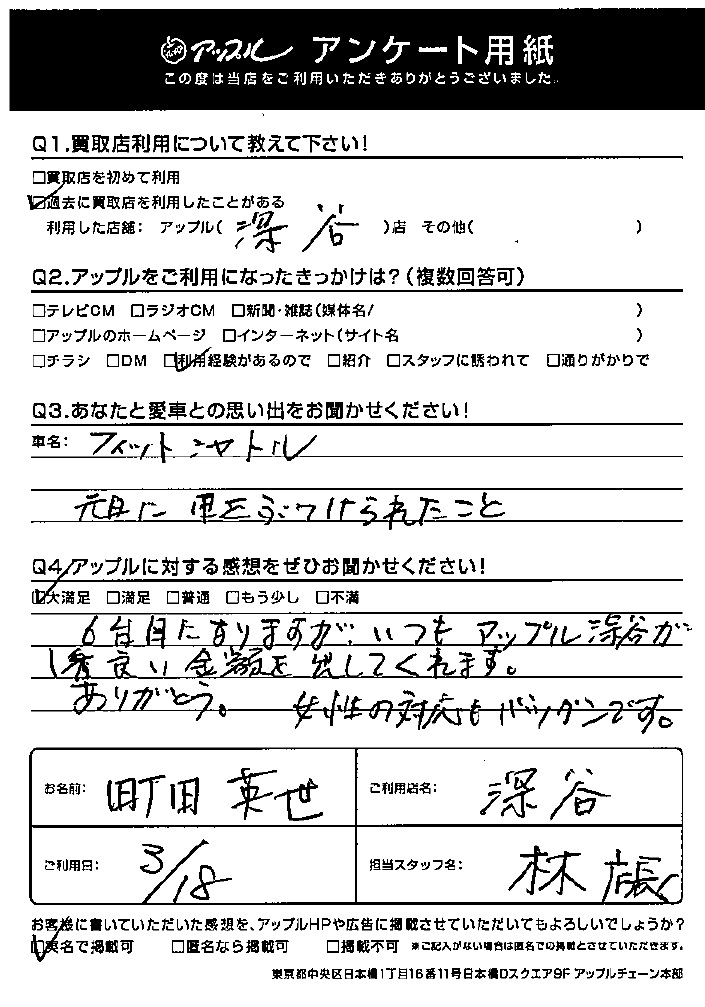 アップル アンケート用紙
この度は当店をご利用いただきありがとうございました。
Q1.買取店利用について教えて下さい!
□買取店を初めて利用
☑過去に買取店を利用したことがある
利用した店舗: アップル( 深谷 )店 その他( )
Q2.アップルをご利用になったきっかけは?(複数回答可)
□テレビCM □ラジオCM □新聞・雑誌(媒体名/ )
□アップルのホームページ □インターネット(サイト名 )
□チラシ □DM ☑利用経験があるので □紹介 □スタッフに誘われて □通りがかりで
Q3.あなたと愛車との思い出をお聞かせください!
車名: フィットシャトル
元旦に 車をぶつけられたこと
Q4.アップルに対する感想をぜひお聞かせください!
☑大満足 □満足 □普通 □もう少し □不満
6台目になりますが、いつも アップル深谷が
1番良い金額を出してくれます。
ありがとう。 女性の対応もバツグンです。
お名前: 町田 英世 ご利用店名: 深谷
ご利用日: 3/18 担当スタッフ名: 林
お客様に書いていただいた感想を、アップルHPや広告に掲載させていただいてもよろしいでしょうか?
☑実名で掲載可 □匿名なら掲載可 □掲載不可 ※ご記入がない場合は匿名での掲載とさせていただきます。
東京都中央区日本橋1丁目16番11号日本橋Dスクエア9F アップルチェーン本部